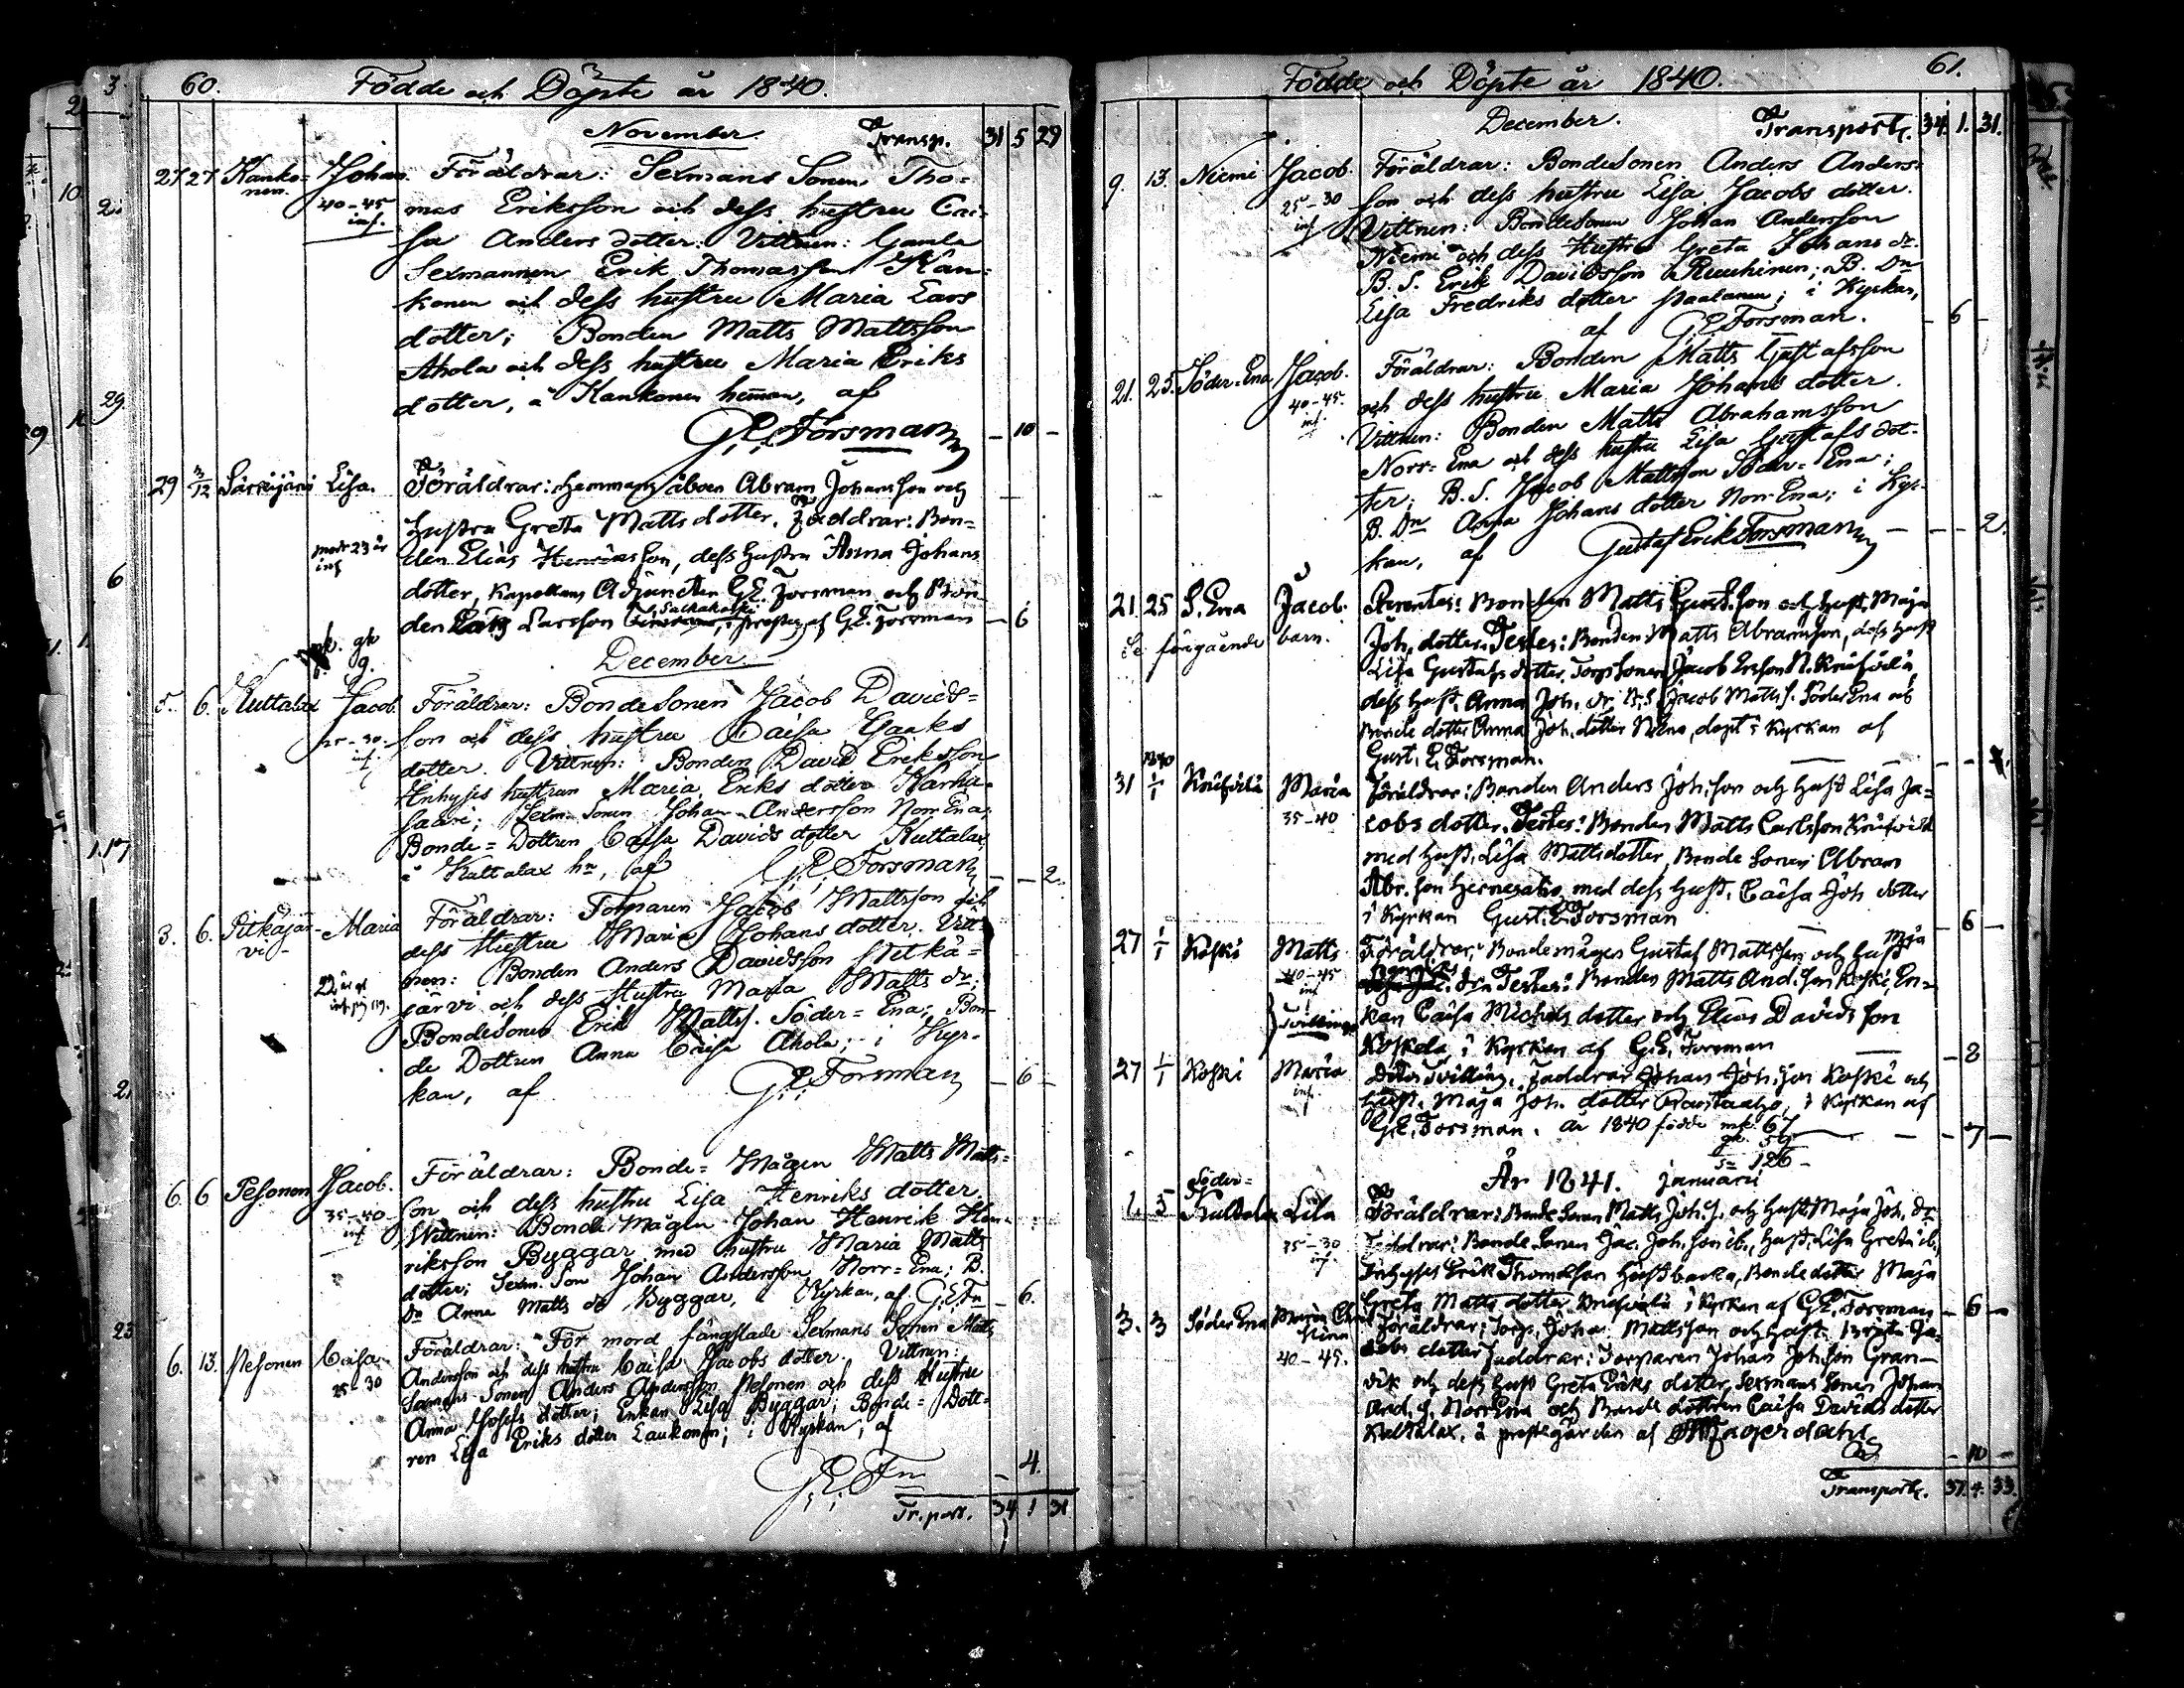 60. Födde och Döpte år 1840.
November. Transp. 31 5 29
27 27 Kanko= Johan Föräldrar: Sexmans Sonen Tho=
nen. 40-45 mas Eriksson och dess hustru Cai=
inf. sa Anders dotter. Vittnen: Gamla
Sexmannen Erik Thomasson Kan=
konen och dess hustru Maria Lars
dotter; Bonden Matts Mattsson
Ahola och dess hustru Maria Eriks
dotter, å Kankonen heman, af
G. E. Forsman - 10 -
29 3/12 Lisa. Föräldrar: Hemmans åboen Abram Johansson och
Hustru Greta Matts dotter. Faddrar: Bon=
mod 23 år den Elias Henriksson, dess Hustru Anna Johans
inf dotter, Kapellans Adjuncten G.E. Forsman och Bon
den Lars Larsson af G.E. Forsman - 6
mk. gk
9. December.
5. 6. Kuttalax Jacob. Föräldrar: BondeSonen Jacob Davids=
25-30 son och dess hustru Caisa Isaaks
inf. dotter. Vittnen: Bonden David Eriksson
Inhyses hustrun Maria Eriks dotter Karha=
saari; Sexm. Sonen Johan Andersson Norr Ena;
Bonde=Dottren Caisa Davids dotter Kuttalax
i Kuttalax hn, af G. E. Forsman - - 2.
3. 6. Pitkäjär= Maria Föräldrar: Torparen Jacob Mattsson och
vi dess Hustru Maria Johans dotter. Vitt=
nen: Bonden Anders Davidsson Pitkä=
22 år järvi och dess Hustru Maria Matts dr;
BondeSonen Erik Mattss. Söder=Ena; Bon=
de Dottren Anna Caisa Ahola; i Kyr=
kan, af G. E. Forsman - 6 -
6. 6 Pesonen Jacob. Föräldrar: Bonde=Mågen Matts Matts=
35-40 son och dess hustru Lisa Henriks dotter.
inf Vittnen: Bonde Mågen Johan Henrik Hen=
riksson Byggar med hustru Maria Matts
dotter; Sexm. Son Johan Andersson Norr=Ena; B.
Dn Anna Matts dr Byggar, i Kyrkan, af G. E. Fn - 6.
6. 13. Pesonen Caisa Föräldrar: För mord fängslade Sexmans Sonen Matts
25-30 Andersson och dess hustru Caisa Jacobs dotter. Vittnen:
Sexmans Sonen Anders Andersson Pesonen och dess Hustru
Anna Josefs dotter; Enkan Lisa Byggar; Bonde=Dott=
ren Lisa Eriks dotter Laukonen; i Kyrkan, af
G. E. Fn - 4.
Tr.port. 34 1 31
61.
Födde och Döpte år 1840.
December. Transport. 34. 1. 31.
9. 13. Niemi Jacob. Föräldrar: BondeSonen Anders Anders=
25-30 son och dess hustru Lisa Jacobs dotter.
inf Vittnen: BondeSonen Johan Andersson
Niemi och dess Hustru Greta Johans dr.
B. S. Erik Davidsson Ruuhinen; B. Dn
Lisa Fredriks dotter; i Kyrkan,
af G. E. Forsman. - 6 -
21. 25. Söder=Ena Jacob. Föräldrar: Bonden Matts Gustafsson
40-45. och dess hustru Maria Johans dotter.
inf. Vittnen: Bonden Matts Abrahamsson
Norr=Ena och dess hustru Lisa Gustafs dot=
ter; B. S. Jacob Mattsson Söder=Ena;
B. Dn Anna Johans dotter Norr-Ena; i Kyr=
kan, af Gustaf Erik Forsman - - - 2.
21. 25 S. Ena Jacob. Parentes: Bonden Matts Gust. son och hust. Maja
Se föregående barn. Joh. dotter. Testes: Bonden Matts Abramsson, dess hust
Lisa Gustafs dotter, Jacob
dess hust. Anna Joh. dr B.S. Jacob Mattss. Söder Ena och
Bonde dotter Anna Joh. dotter N Ena, döpt i Kyrkan af
Gust. E. Forsman.
31 1/1 Maria Föräldrar: Bonden Anders Joh. son och hust Lisa Ja=
35-40 cobs dotter. Testes: Bonden Matts Carlsson
med hust. Lisa Mattsdotter, Bonde Sonen Abram
Abr. son med dess hust. Caisa Joh dotter
i Kyrkan Gust. E. Forsman - 6 -
27 1/1 Koski Matts Föräldrar: Bondemågen Gustaf Mattsson och hust Maja
40-45 drn Testes: Bonden Matts And. son Koski, En=
inf kan Caisa Michels dotter och Elias Davids son
Tvillingar Koskela, i Kyrkan af G.E. Forsman - 8
27 1/1 Koski Maria Ditos Tvilling. Faddrar Johan Joh. son Koski och
inf. hust. Maja Joh. dotter, i Kyrkan af
G.E. Forsman. år 1840 födde mk. 67 - 7 -
gk. 59
S= 126
År 1841. Januarii
1. 5 Söder= Lisa Föräldrar: Bonde Sonen Matts Joh. s. och hust Maja Joh. dr
Kuttalax
25-30 Faddrar: Bonde Sonen Jac. Joh. son ib., hust. Lisa Greta ib.,
inf. Inhyses Erik Thomasson Härstbacka, Bonde dotter Maja
Greta Matts dotter i Kyrkan af G.E. Forsman - 6 -
3. 3 Söder Ena Maria Christina Föräldrar: Torp. Johan Mattsson och hust. Brita Ja=
40-45. cobs dotter Faddrar: Torparen Johan Joh. son Gran=
vik och dess hust Greta Eriks dotter, Sexmans Sonen Johan
And. s. Norr Ena och Bonde dottren Caisa Davids dotter
Kuttalax, å prestegården af Fagerdahl
- 10 -
Transport. 37. 4. 33.